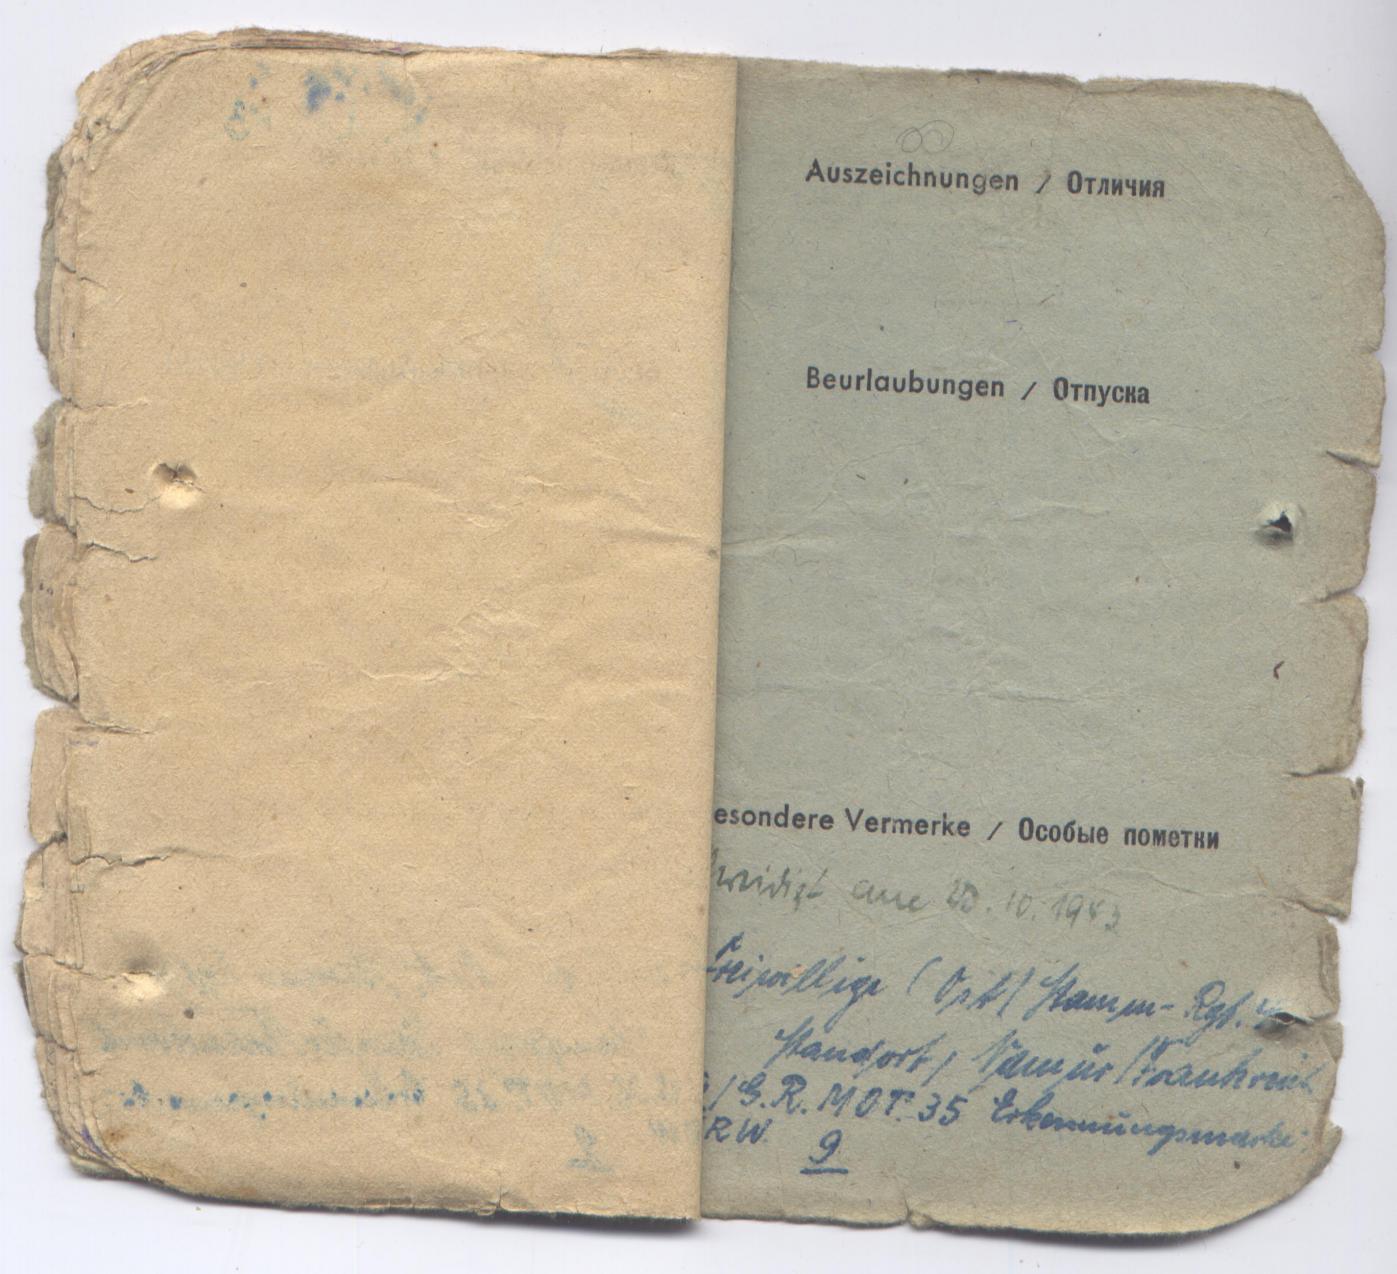 Auszeichnungen / Отличия
Beurlaubungen / Отпуска
esondere Vermerke / Особые пометки
am 20.10.1943
Freiwillige (Ost) Stamm-Rgt.
Standort, Namur / Frankreich
/ G.R. MOT. 35 Erkennungsmarke:
RW 9